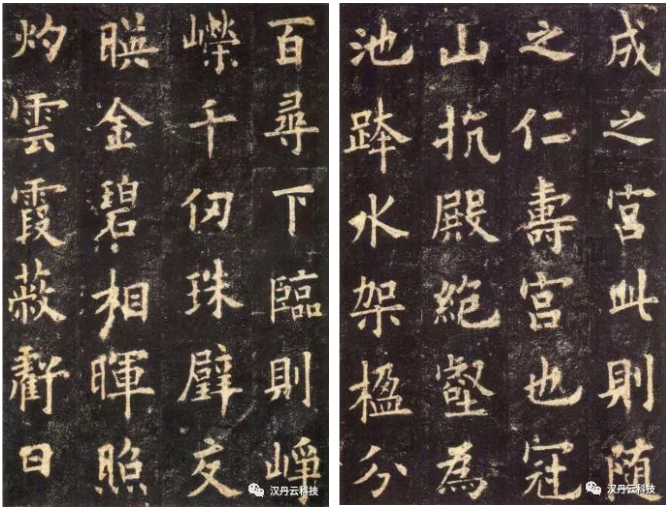 成之宮此則随
之仁壽宮也冠
山抗殿絶壑為
池跨水架楹分
汉丹云科技
百尋下臨則崢
嶸千仞珠璧交
暎金碧相暉照
灼雲霞蔽虧日
汉丹云科技